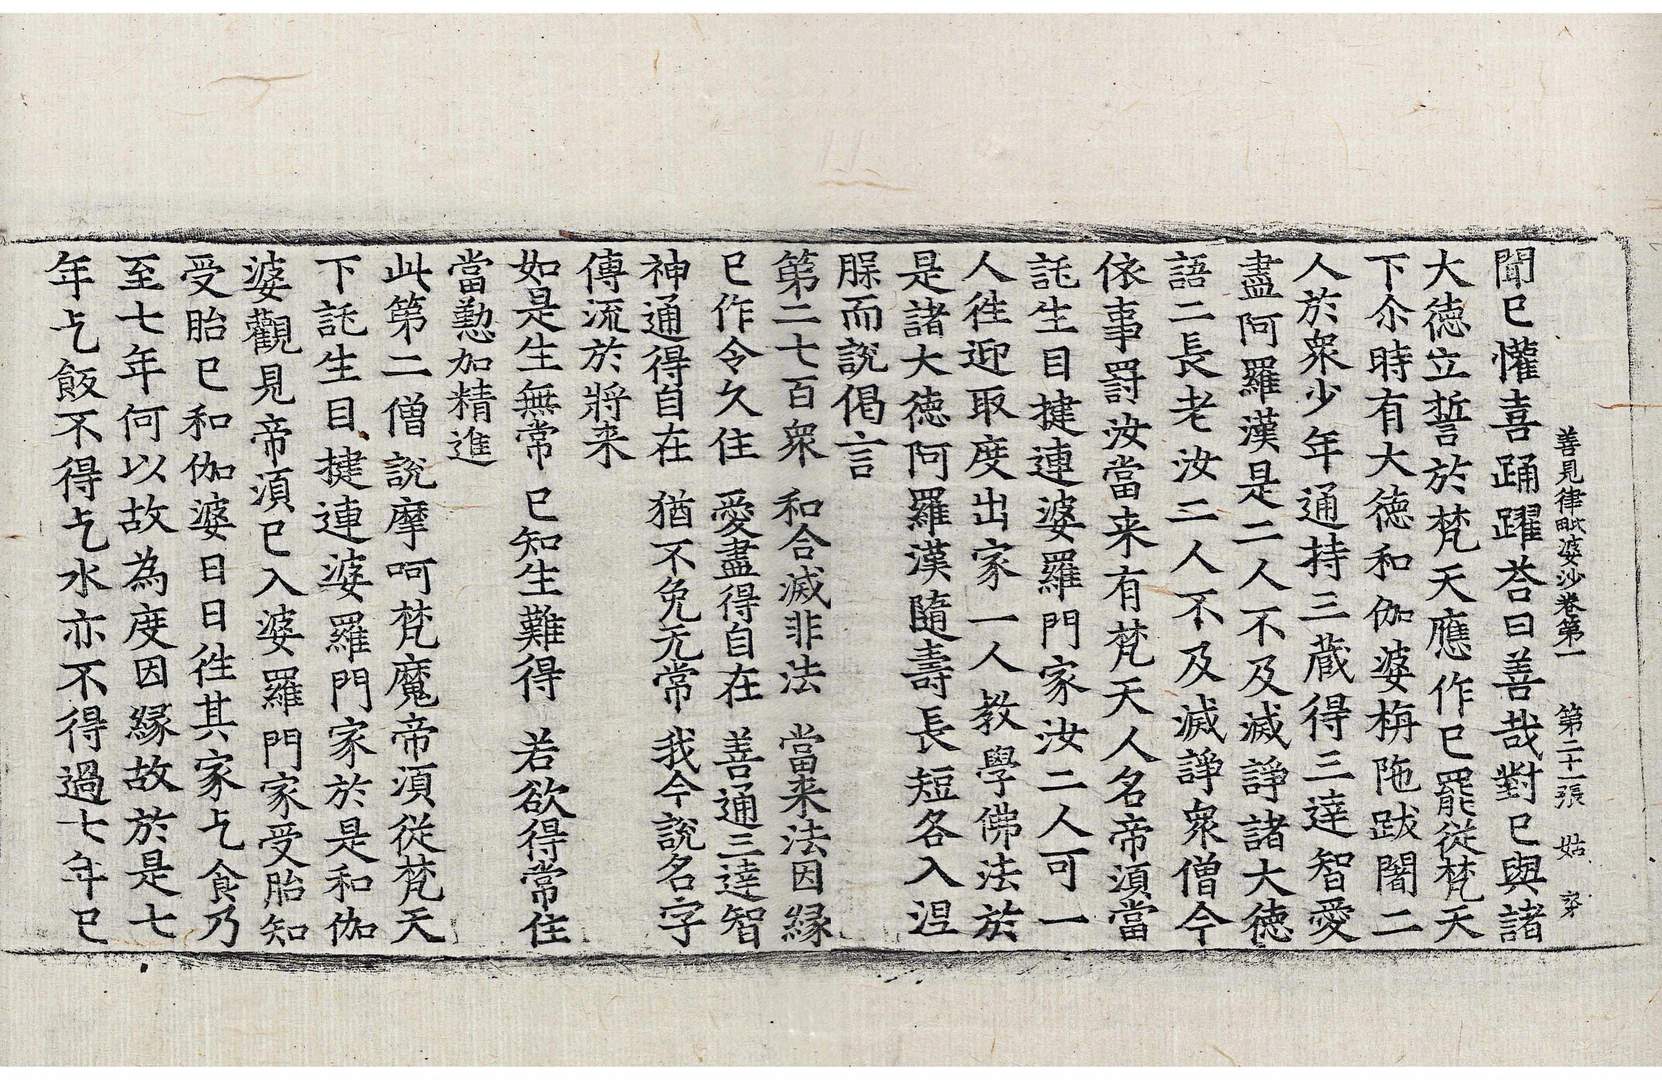 善見律毗婆沙卷第一　第二十一張　姑
聞已懽喜踊躍荅曰善哉對已與諸
大德立誓於梵天應作已罷從梵天
下尒時有大德和伽婆栴陁跋闍二
人於衆少年通持三藏得三達智愛
盡阿羅漢是二人不及滅諍諸大德
語二長老汝二人不及滅諍衆僧今
依事罸汝當来有梵天人名帝湏當
託生目揵連婆羅門家汝二人可一
人徃迎取度出家一人教學佛法於
是諸大德阿羅漢隨壽長短各入涅
腂而說偈言
第二七百衆　和合滅非法　當来法因緣
已作令久住　愛盡得自在　善通三達智
神通得自在　猶不免无常　我今說名字
傳流於將来
如是生無常　已知生難得　若欲得常住
當懃加精進
此第二僧說摩呵梵魔帝湏從梵天
下託生目揵連婆羅門家於是和伽
婆觀見帝湏已入婆羅門家受胎知
受胎已和伽婆日日徃其家乞食乃
至七年何以故為度因緣故於是七
年乞飯不得乞水亦不得過七年已